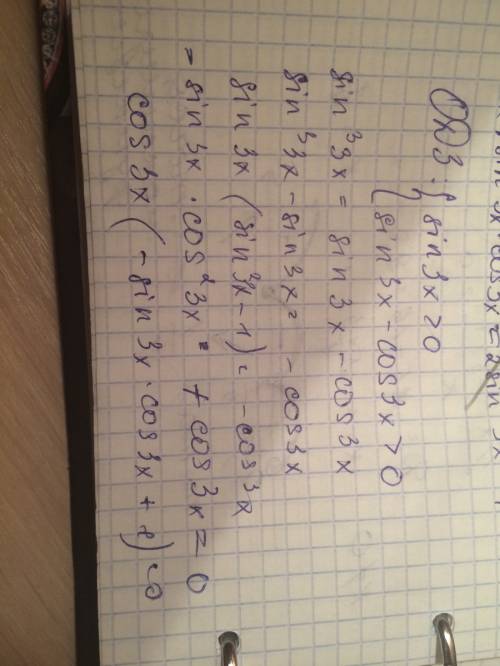 ОДЗ: { sin 3x > 0
{ sin 3x - cos 3x > 0
sin³ 3x = sin 3x - cos 3x
sin³ 3x - sin 3x = - cos 3x
sin 3x (sin² 3x - 1) = - cos 3x
- sin 3x · cos² 3x + cos 3x = 0
cos 3x (- sin 3x · cos 3x + 1) = 0